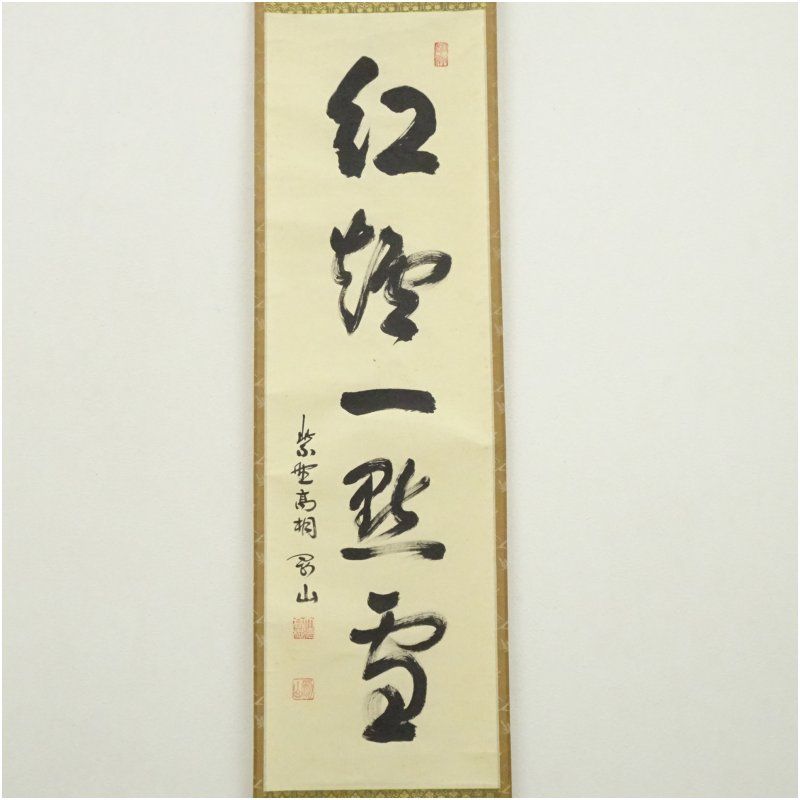 紅爐一點雪
紫野高桐 剛山